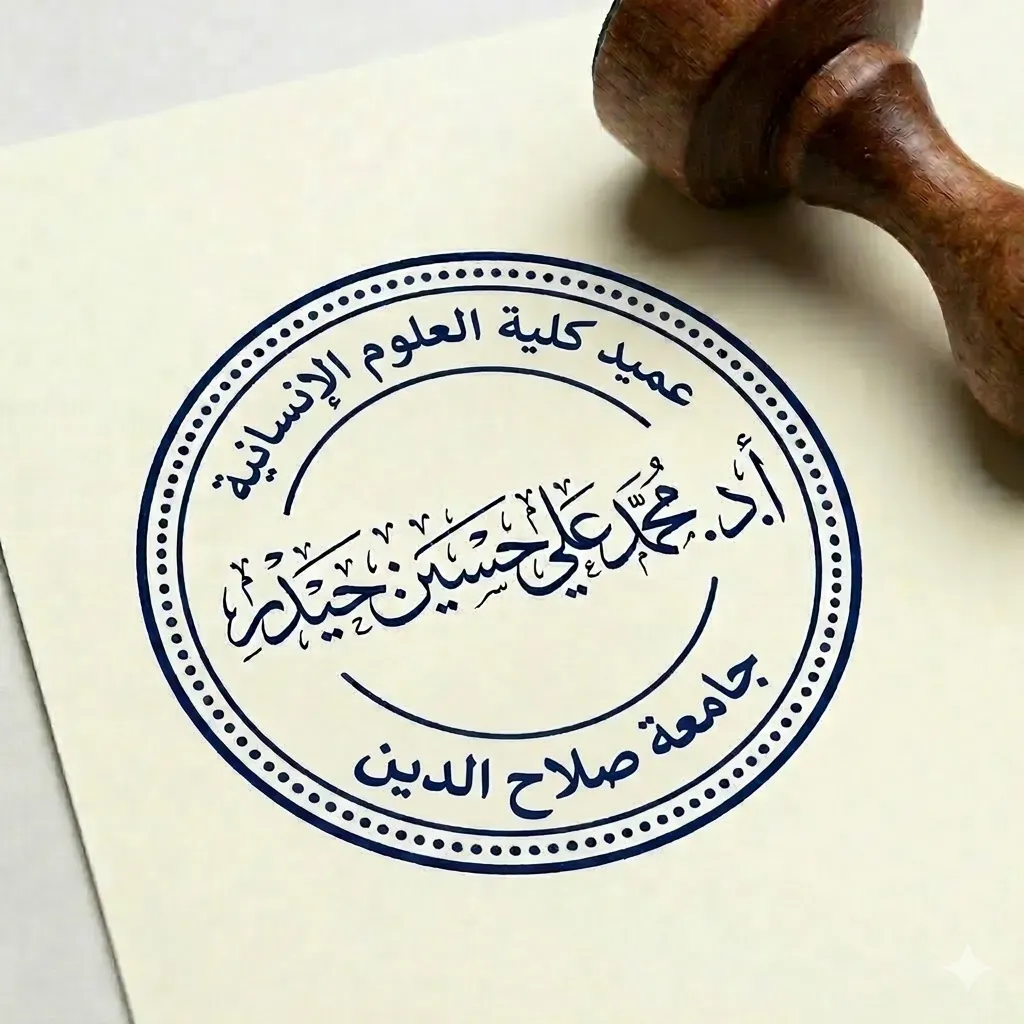 عميد كلية العلوم الإنسانية
أ.د. مُحمَّد عَلي حسين حيَدْر
جامعة صلاح الدين